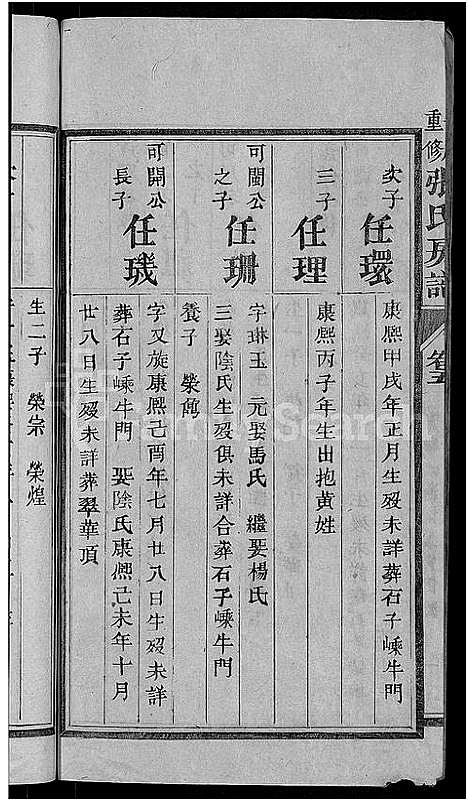 重修張氏房譜
卷五
次子
任環
康熙甲戌年正月生歿未詳葬石子嵊牛門
三子
任理
康熙丙子年生出抱黃姓
可閩公
之子
任珊
字琳玉 元娶馬氏 繼娶楊氏
三娶陰氏生歿俱未詳合葬石子嵊牛門
養子 榮舊
可開公
長子
任璣
字又旋康熙己酉年七月廿八日生歿未詳
葬石子嵊牛門 娶陰氏康熙己未年十月
廿八日生歿未詳葬翠華項
生二子 榮宗 榮煌